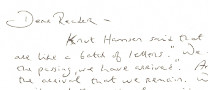 Dear Reader –
Knut Hamsun said that
are like a batch of letters. "We
the posting, we have arrived. A
the arrival that we remain. W